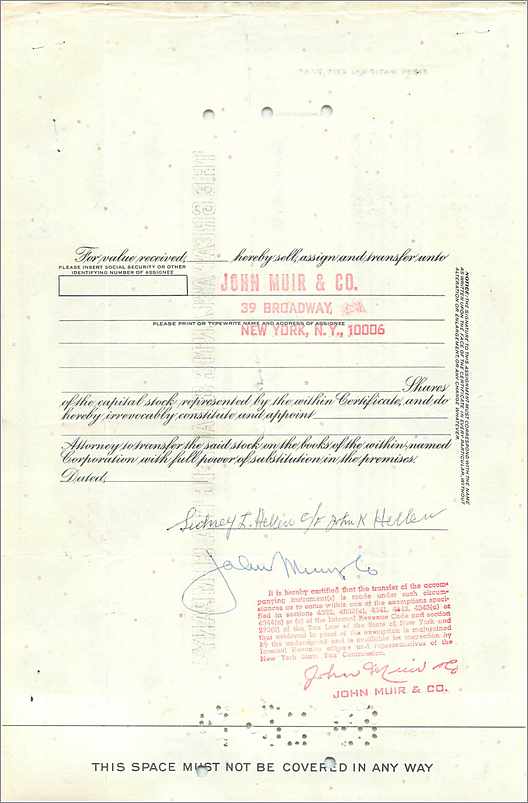 For value received, hereby sell, assign and transfer unto
PLEASE INSERT SOCIAL SECURITY OR OTHER
IDENTIFYING NUMBER OF ASSIGNEE
JOHN MUIR & CO.
39 BROADWAY,
PLEASE PRINT OR TYPEWRITE NAME AND ADDRESS OF ASSIGNEE
NEW YORK, N. Y., 10006
Shares
of the capital stock represented by the within Certificate, and do
hereby irrevocably constitute and appoint
Attorney to transfer the said stock on the books of the within named
Corporation with full power of substitution in the premises.
Dated,
NOTICE: THE SIGNATURE TO THIS ASSIGNMENT MUST CORRESPOND WITH THE NAME
AS WRITTEN UPON THE FACE OF THE CERTIFICATE IN EVERY PARTICULAR, WITHOUT
ALTERATION OR ENLARGEMENT OR ANY CHANGE WHATEVER.
Sidney L. Hellen c/o John K Hellen
John Muir & Co
It is hereby certified that the transfer of the accom-
panying instrument(s) is made under such circum-
stances as to come within one of the exemptions speci-
fied in sections 4343(a) or
of the Internal Revenue Code and section
of the Tax Law of the State of New York and
that evidence in proof of the exemption is maintained
by the undersigned and is available for inspection by
Internal Revenue officers and representatives of the
New York State Tax Commission.
John Muir & Co
JOHN MUIR & CO.
THIS SPACE MUST NOT BE COVERED IN ANY WAY